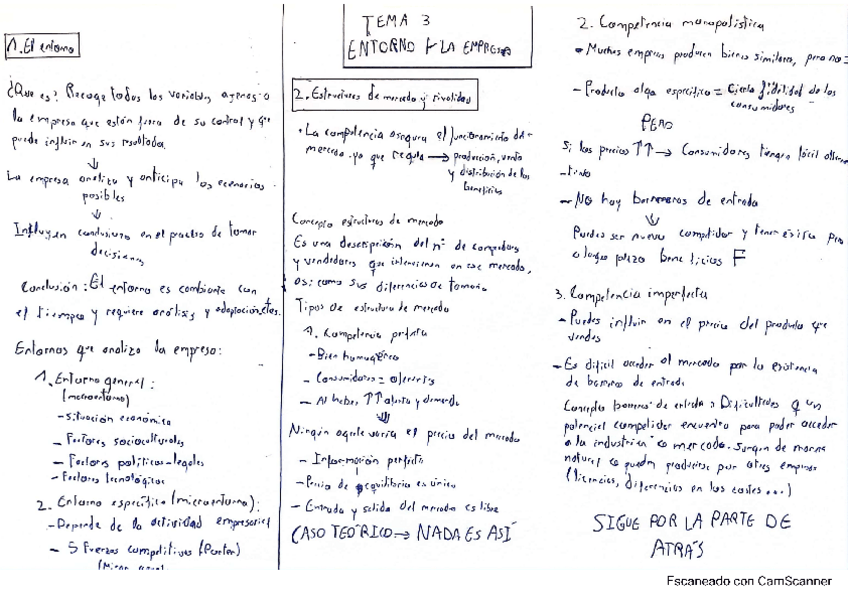 TEMA 3
ENTORNO Y LA EMPRESA
1. El entorno
¿Que es? Recoge todas las variables ajenas a
la empresa que están fuera de su control y que
puede influir en sus resultados.
↓
La empresa analiza y anticipa los escenarios
posibles
↓
Influyen en el proceso de tomar
decisiones
Conclusión: El entorno es cambiante con
el tiempo y requiere análisis y adaptación
Entornos que analiza la empresa:
1. Entorno general:
(macroentorno)
- Situación económica
- Factores socioculturales
- Factores políticos-legales
- Factores tecnológicos
2. Entorno específico (microentorno):
- Depende de la actividad empresarial
- 5 Fuerzas competitivas (Porter)
2. Estructuras de mercado y rivalidad
• La competencia asegura el funcionamiento del
mercado ya que regula → producción, venta
y distribución de los
beneficios
Concepto estructuras de mercado
Es una descripción del nº de compradores
y vendedores que intervienen en ese mercado,
asi como sus diferencias de tamaño
Tipos de estructura de mercado
1. Competencia perfecta
- Bien homogéneo
- Consumidores = oferentes
- Al haber ↑↑ oferta y demanda
⇓
Ningún agente varía el precio del mercado
- Información perfecta
- Precio de equilibrio es único
- Entrada y salida del mercado es libre
CASO TEÓRICO → NADA ES ASÍ
2. Competencia monopolística
• Muchas empresas producen bienes similares, pero no =
- Producto algo específico = Cierta fidelidad de los
consumidores
PERO
Si los precios ↑↑ → Consumidores tienen fácil alterna
-tiva
- No hay barreras de entrada
⇓
Puedes ser nuevo competidor y tener éxito pero
a largo plazo beneficios F
3. Competencia imperfecta
- Puedes influir en el precio del producto que
vendes
- Es difícil acceder al mercado por la existencia
de barreras de entrada
Concepto barreras de entrada: Dificultades q un
potencial competidor encuentra para poder acceder
a la industria o mercado. Surgen de manera
natural o pueden producirse por otras empresas
(licencias, diferencias en los costes...)
SIGUE POR LA PARTE DE
ATRÁS
Escaneado con CamScanner